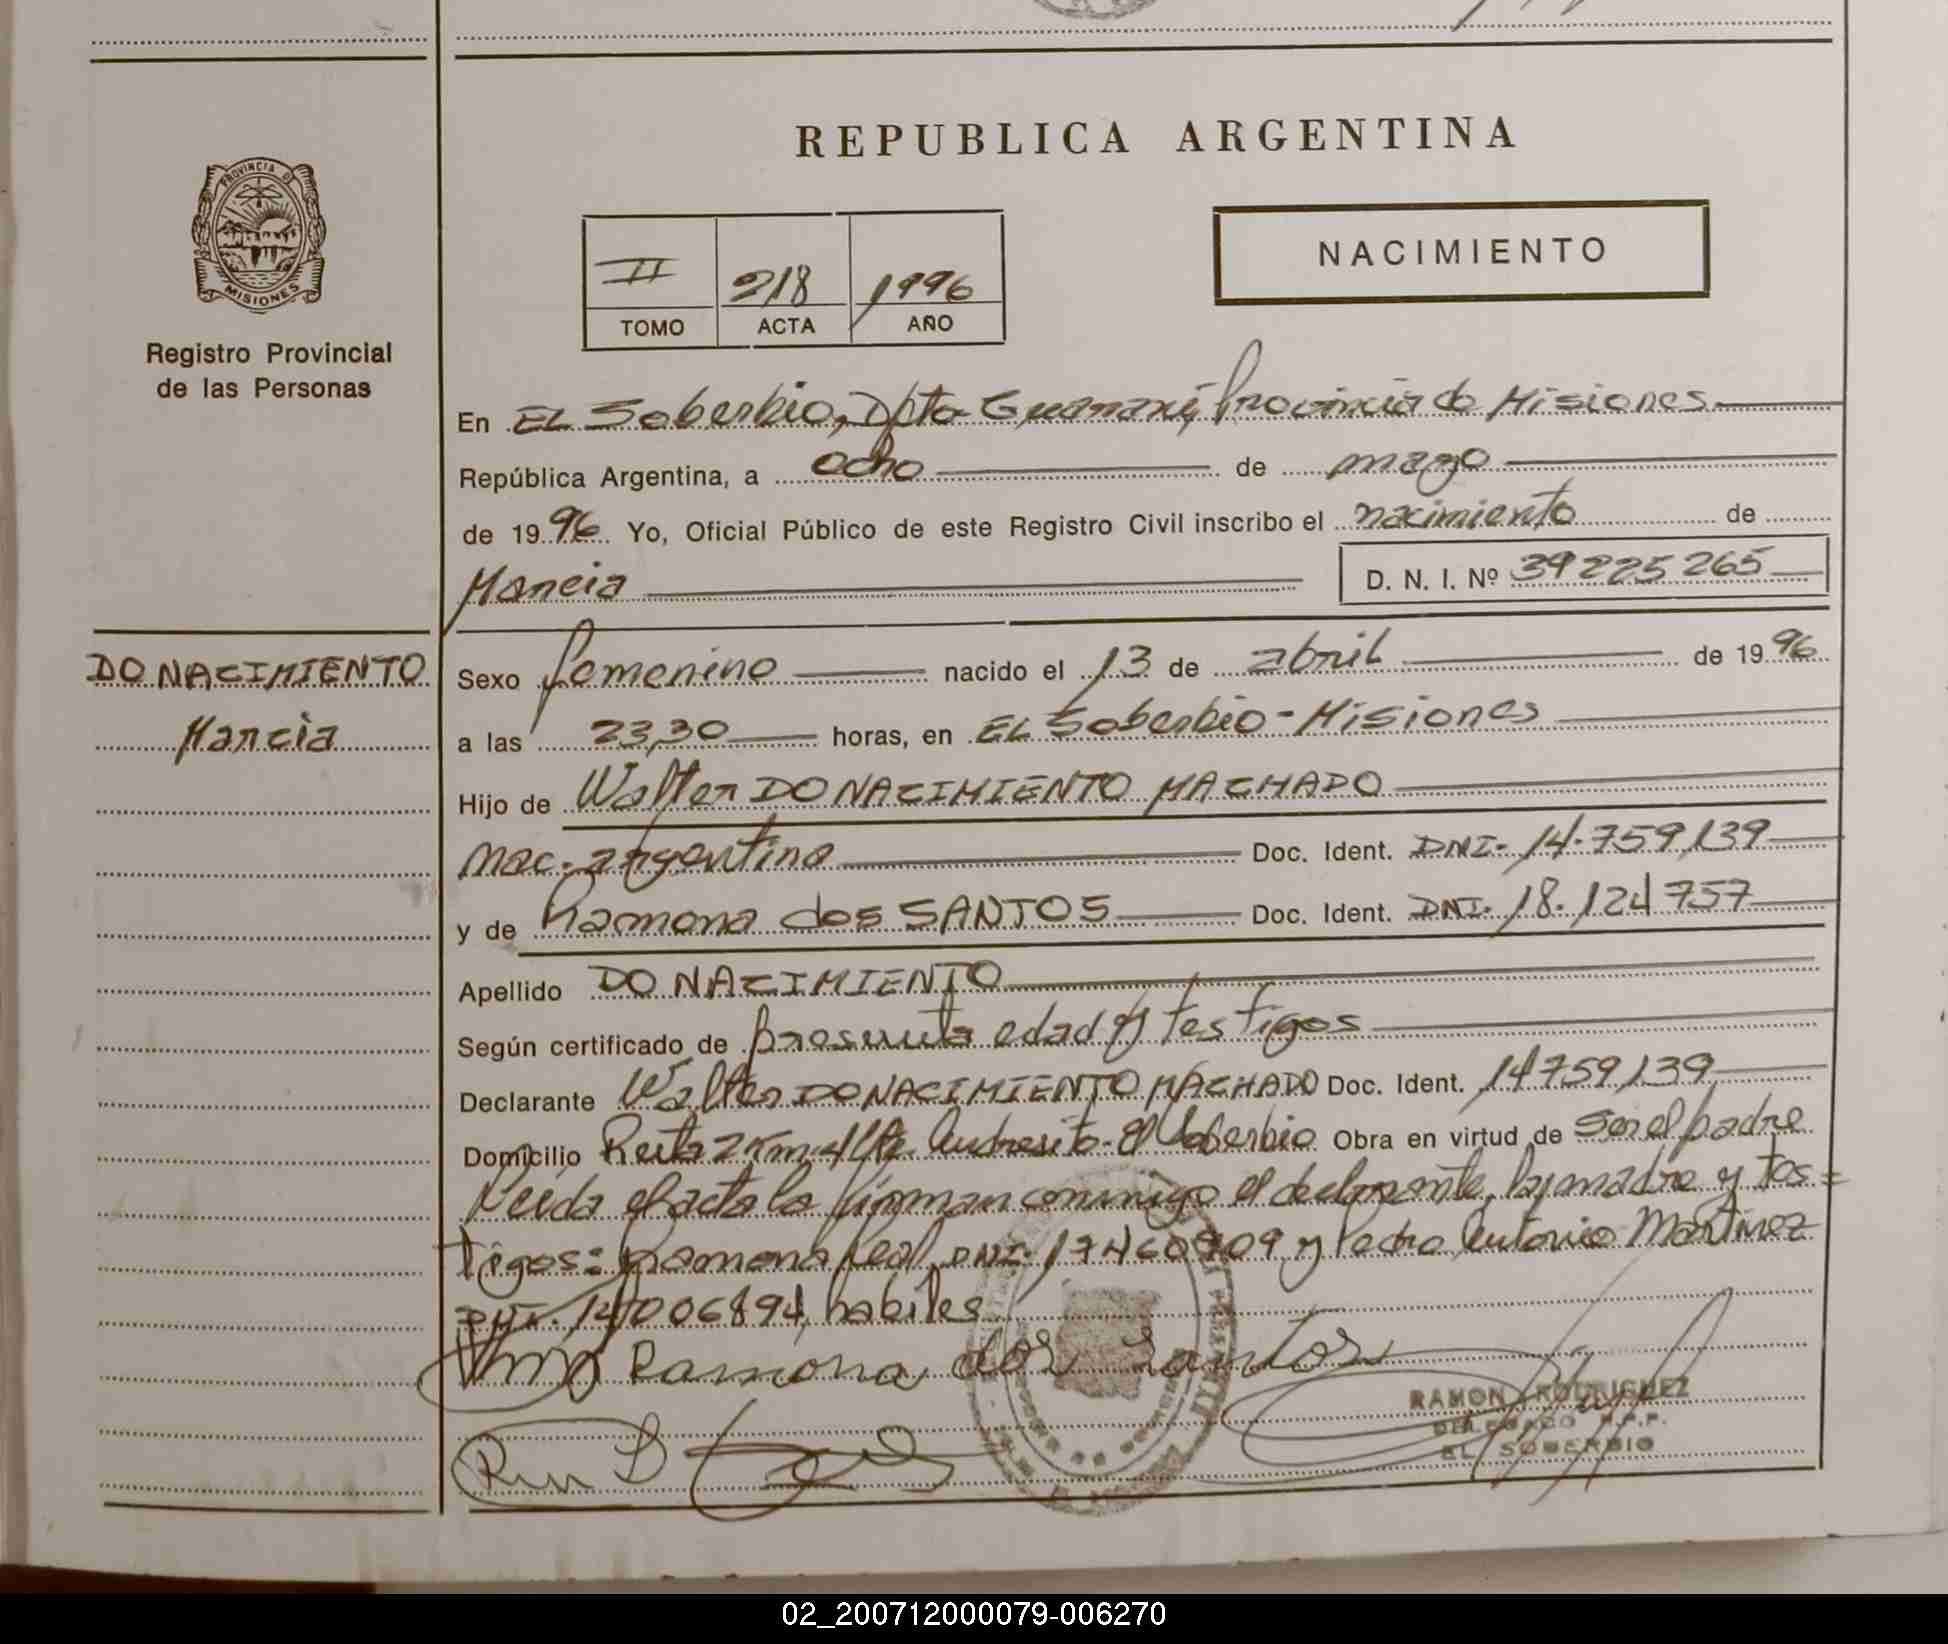 REPUBLICA ARGENTINA
PROVINCIA DE
MISIONES
Registro Provincial
de las Personas
II 218 1996
TOMO ACTA AÑO
NACIMIENTO
En EL Soberbio, Dpto Guaraní, Provincia de Misiones
República Argentina, a ocho de mayo
de 1996 Yo, Oficial Público de este Registro Civil inscribo el nacimiento de
Marcia D. N. I. Nº 39225265
DO NACIMIENTO
Marcia
Sexo femenino nacido el 13 de abril de 1996
a las 23,30 horas, en EL Soberbio - Misiones
Hijo de Walter DO NACIMIENTO MACHADO
nac. argentina Doc. Ident. DNI. 14.759,139
y de Ramona dos SANTOS Doc. Ident. DNI. 18.124757
Apellido DO NACIMIENTO
Según certificado de presunta edad y testigos
Declarante Walter DO NACIMIENTO MACHADO Doc. Ident. 14759,139
Domicilio Ruta 2 Km Andresito - El Soberbio Obra en virtud de ser el padre
Leída el acta la firman conmigo el declarante, la madre y tes=
tigos: Ramona Leal, DNI. y Pedro Antonio Martinez
DNI. 14006894, habiles
Ramona dos Santos
RAMON RODRIGUEZ
DELEGADO R.P.P.
EL SOBERBIO
02_200712000079-006270